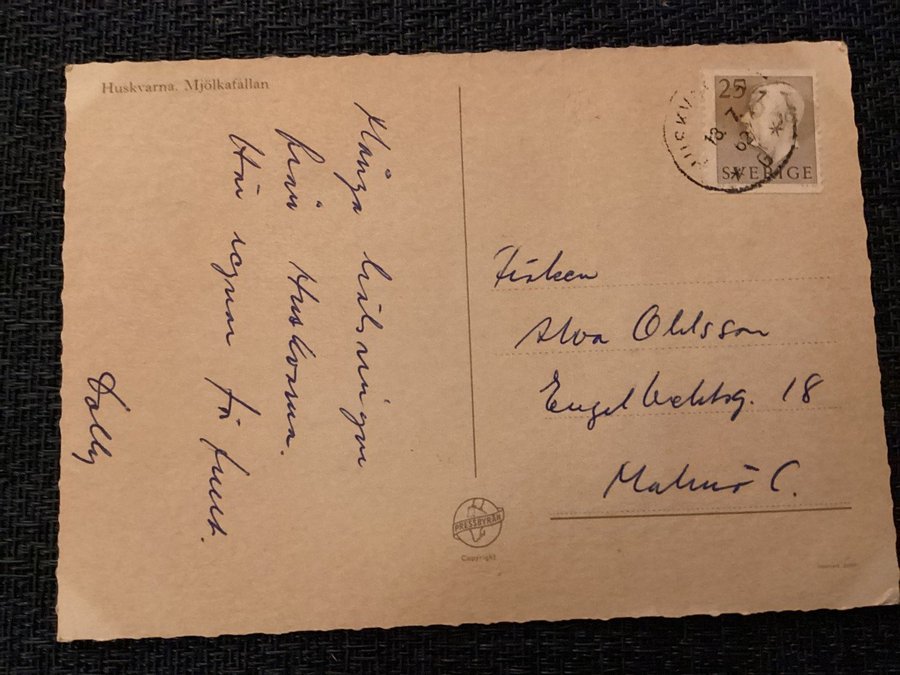 Huskvarna. Mjölkafällan
Många hälsningar
från Huskvarna.
Här regnar för fullt.
Dolly
25
SVERIGE
Fröken
Alva Ohlsson
Engelbrektsg. 18
Malmö C.
PRESSBYRÅN
Copyright